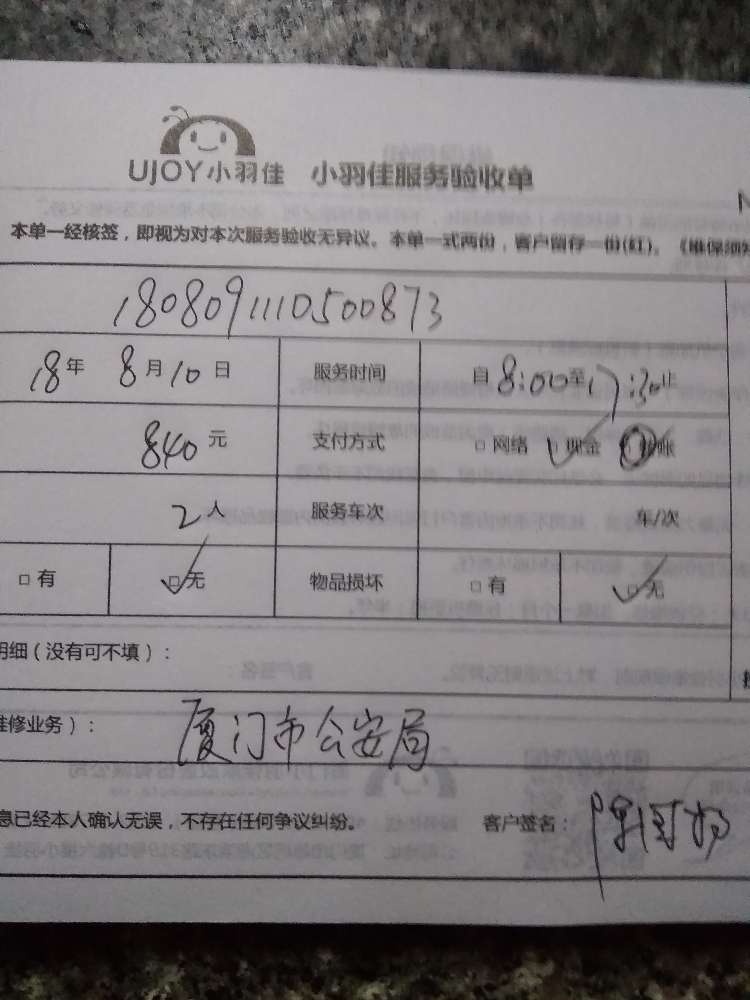 UJOY小羽佳 小羽佳服务验收单
本单一经核签，即视为对本次服务验收无异议。本单一式两份，客户留存一份(红)。《维保须知
180809111050087​3
18年 8月10日 服务时间 自8:00至17:30止
840元 支付方式 □网络 □现金 □转账
2人 服务车次 车/次
□有 □无 物品损坏 □有 □无
明细（没有可不填）：
维修业务）： 厦门市公安局
息已经本人确认无误，不存在任何争议纠纷。 客户签名：